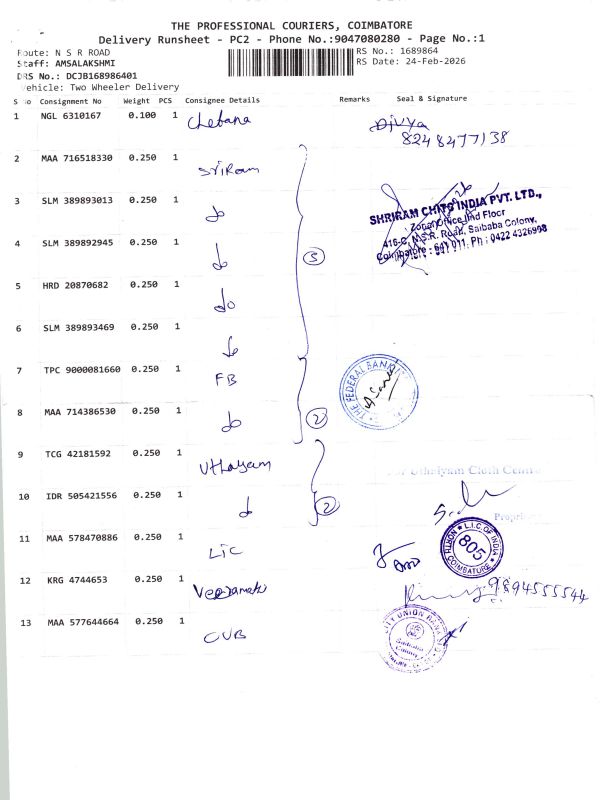 THE PROFESSIONAL COURIERS, COIMBATORE
Delivery Runsheet - PC2 - Phone No.:9047080280 - Page No.:1
Route: N S R ROAD
RS No.: 1689864
Staff: AMSALAKSHMI
RS Date: 24-Feb-2026
DRS No.: DCJB168986401
Vehicle: Two Wheeler Delivery
S No Consignment No Weight PCS Consignee Details Remarks Seal & Signature
1 NGL 6310167 0.100 1 Chetana Divya
8248477138
2 MAA 716518330 0.250 1 SriRam
3 SLM 389893013 0.250 1 do
SHRIRAM CHITS INDIA PVT. LTD.,
Zonal Office, IInd Floor
416-C, N.S.R. Road, Saibaba Colony,
Coimbatore - 641 011. Ph : 0422 4326998
4 SLM 389892945 0.250 1 do 5
5 HRD 20870682 0.250 1 do
6 SLM 389893469 0.250 1 do
7 TPC 9000081660 0.250 1 FB
THE FEDERAL BANK
8 MAA 714386530 0.250 1 do 2
9 TCG 42181592 0.250 1 Uthayam
Uthaiyam Cloth Centre
10 IDR 505421556 0.250 1 do 2
11 MAA 578470886 0.250 1 LIC
L.I.C. OF INDIA
805
COIMBATORE NORTH
12 KRG 4744653 0.250 1 Veeramati 9894555544
13 MAA 577644664 0.250 1 CUB
CITY UNION BANK